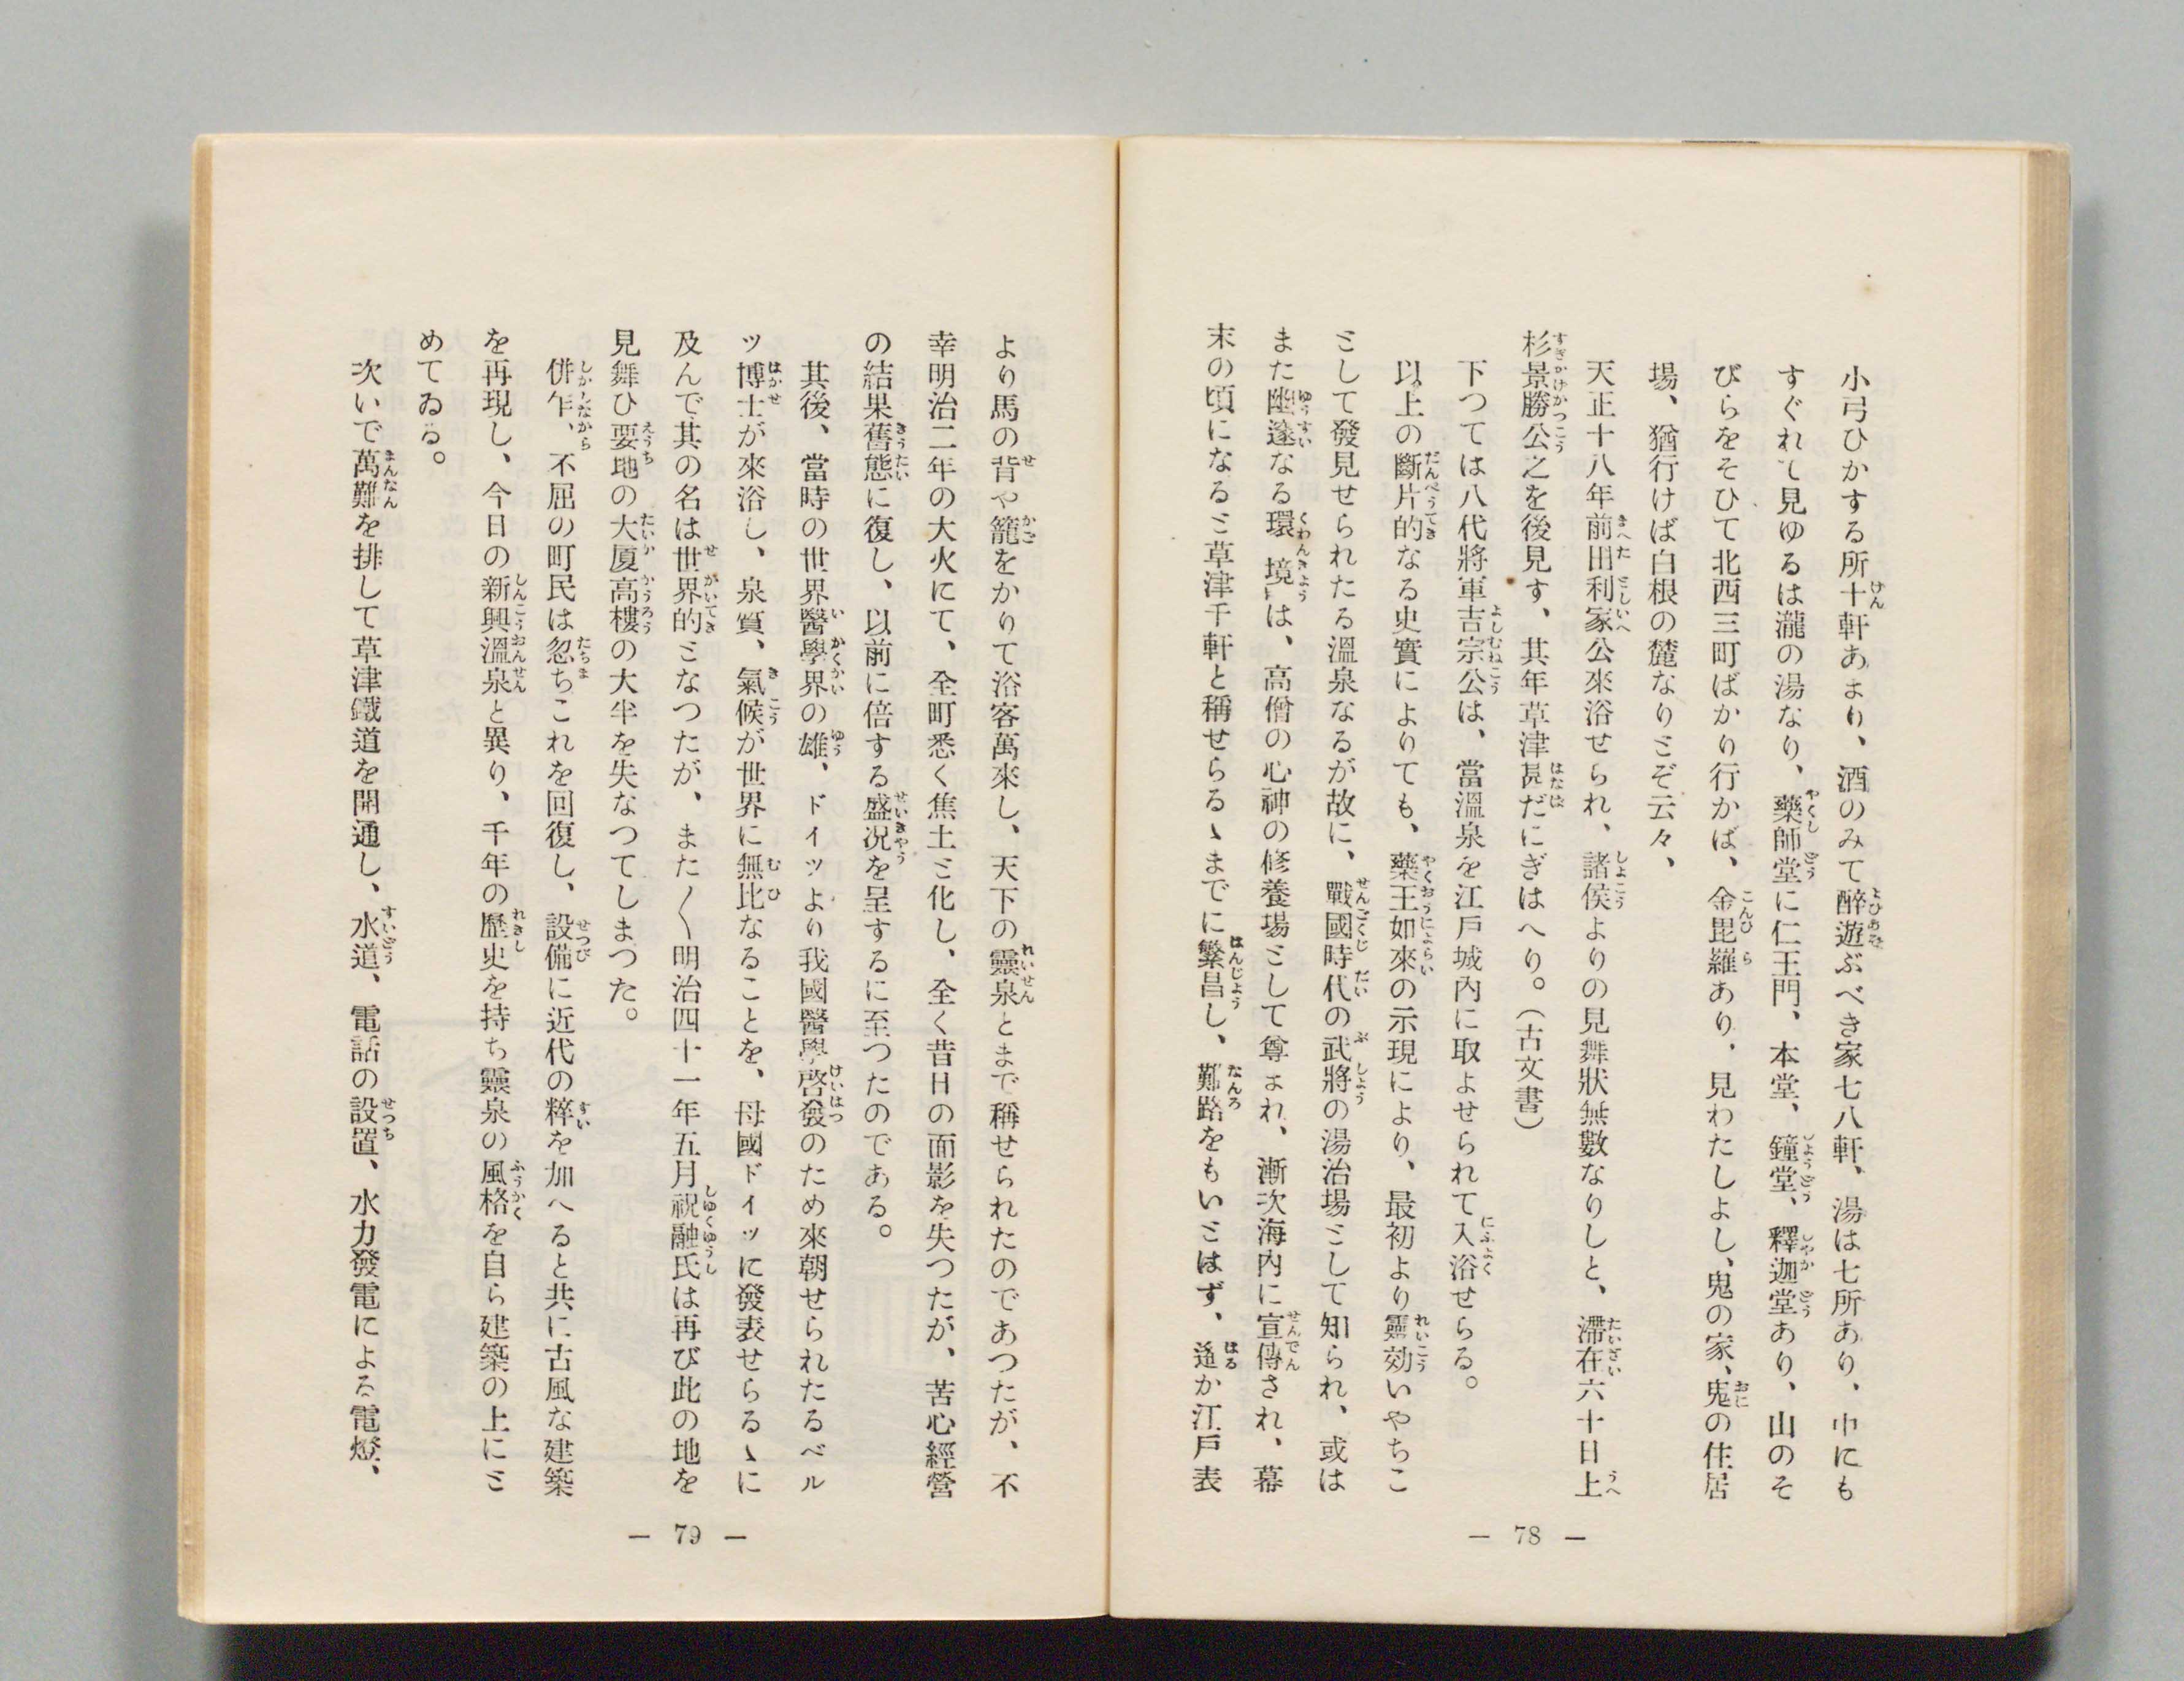 小弓ひかする所十軒あまり、酒のみて醉遊ぶべき家七八軒、湯は七所あり、中にも
すぐれて見ゆるは瀧の湯なり、藥師堂に仁王門、本堂、鐘堂、釋迦堂あり、山のそ
びらをそひて北西三町ばかり行かば、金毘羅あり、見わたしよし、鬼の家、鬼の住居
場、猶行けば白根の麓なりミぞ云々、
天正十八年前田利家公來浴せられ、諸侯よりの見舞狀無數なりしと、滯在六十日上
杉景勝公之を後見す、其年草津甚だにぎはへり。（古文書）
下つては八代將軍吉宗公は、當溫泉を江戶城內に取よせられて入浴せらる。
以上の斷片的なる史實によりても、藥王如來の示現により、最初より靈効いやちこ
ミして發見せられたる溫泉なるが故に、戰國時代の武將の湯治場ミして知られ、或は
また幽邃なる環境は、高僧の心神の修養場ミして尊まれ、漸次海內に宣傳され、幕
末の頃になるミ草津千軒と稱せらるゝまでに繁昌し、難路をもいミはず、遙か江戶表
— 78 —
より馬の背や籠をかりて浴客萬來し、天下の靈泉とまで稱せられたのであつたが、不
幸明治二年の大火にて、全町悉く焦土ミ化し、全く昔日の面影を失つたが、苦心經營
の結果舊態に復し、以前に倍する盛況を呈するに至つたのである。
其後、當時の世界醫學界の雄、ドイツより我國醫學啓發のため來朝せられたるベル
ツ博士が來浴し、泉質、氣候が世界に無比なることを、母國ドイツに發表せらるゝに
及んで其の名は世界的ミなつたが、また〱明治四十一年五月祝融氏は再び此の地を
見舞ひ要地の大厦高樓の大半を失なつてしまつた。
併乍、不屈の町民は忽ちこれを回復し、設備に近代の粹を加へると共に古風な建築
を再現し、今日の新興溫泉と異り、千年の歷史を持ち靈泉の風格を自ら建築の上にミ
めてゐる。
次いで萬難を排して草津鐵道を開通し、水道、電話の設置、水力發電による電燈、
— 79 —